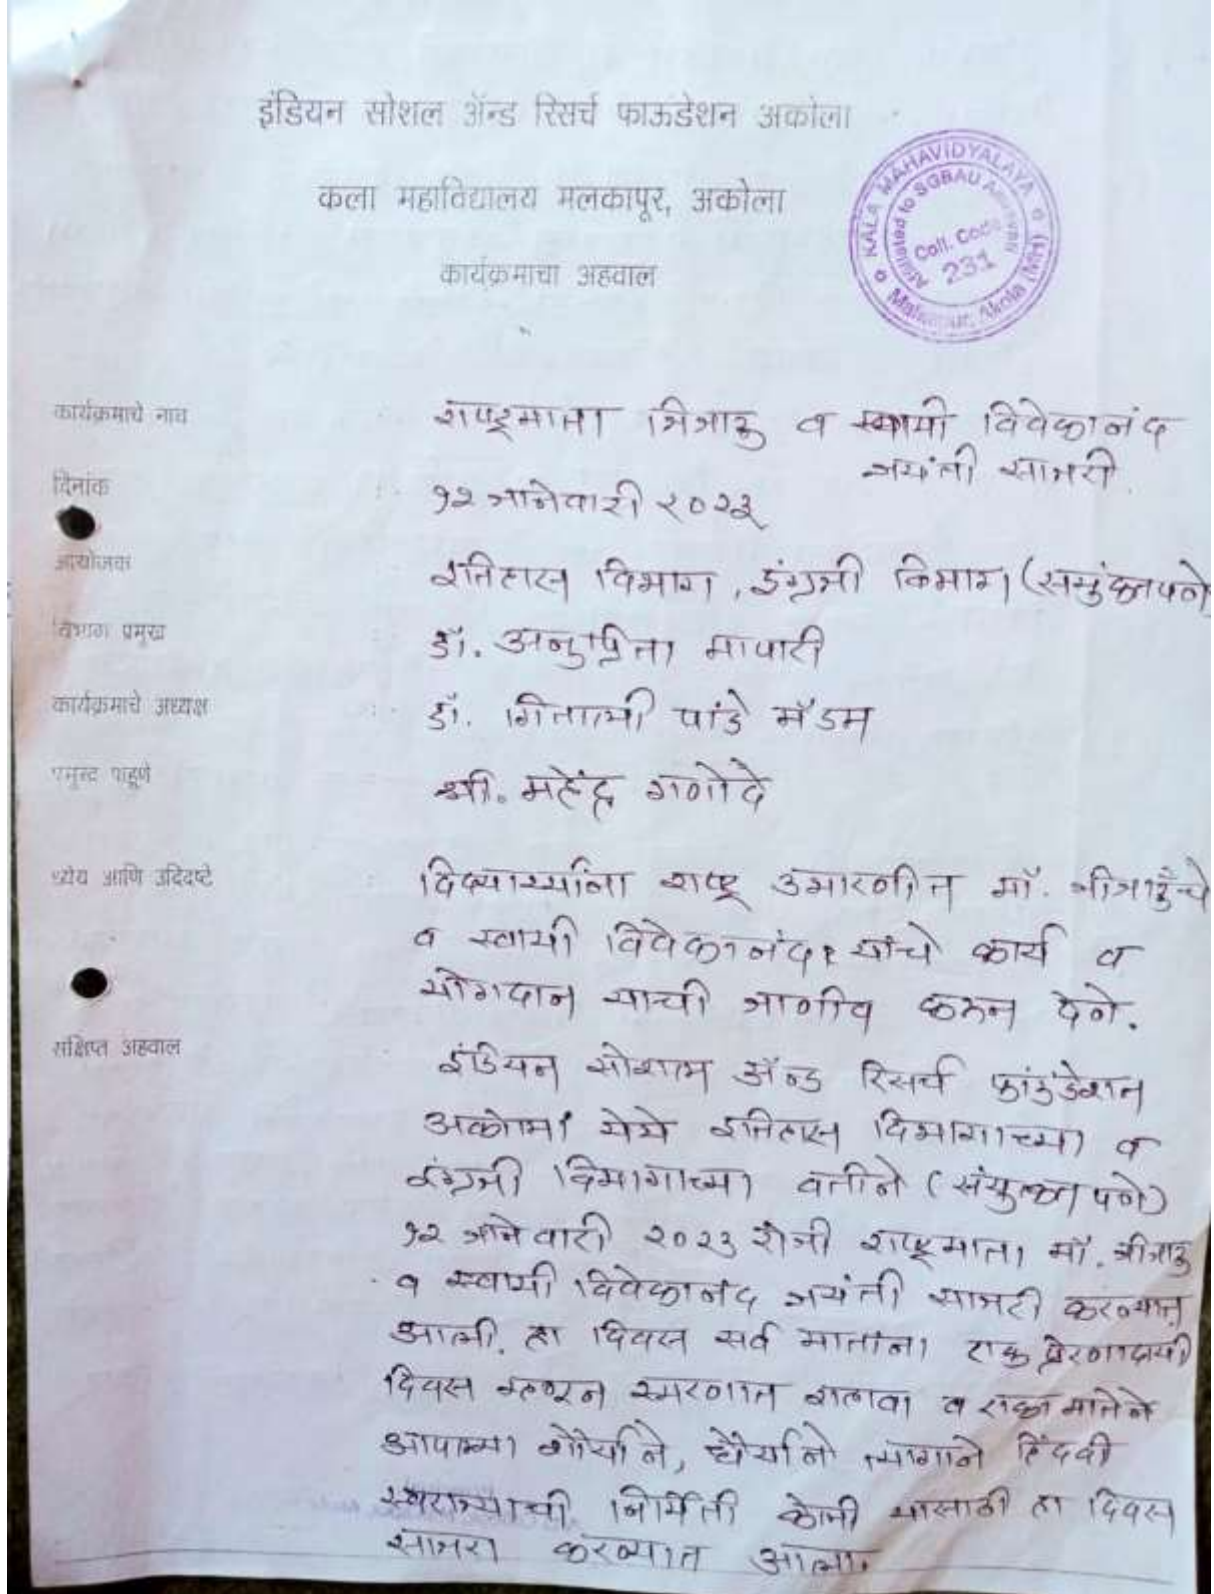 इंडियन सोशल ॲन्ड रिसर्च फाऊंडेशन अकोला
कला महाविद्यालय मलकापूर, अकोला
कार्यक्रमाचा अहवाल
KALA MAHAVIDYALAYA
Affiliated to SGBAU Amravati
Coll. Code
231
Malkapur, Akola (MH)
कार्यक्रमाचे नाव राष्ट्रमाता जिजाऊ व स्वामी विवेकानंद
जयंती साजरी.
दिनांक १२ जानेवारी २०२३
आयोजक इतिहास विभाग, इंग्रजी विभाग (संयुक्तपणे)
विभाग प्रमुख डॉ. अनुप्रिता मापारी
कार्यक्रमाचे अध्यक्ष डॉ. गिताली पांडे मॅडम
प्रमुख पाहूणे श्री. महेंद्र गणोदे
ध्येय आणि उदिदष्टे विद्यार्थ्यांना राष्ट्र उभारणीत माँ. जीजाऊंचे
व स्वामी विवेकानंद यांचे कार्य व
योगदान याची जाणीव करून देणे.
संक्षिप्त अहवाल इंडियन सोशल ॲन्ड रिसर्च फांउंडेशन
अकोला येथे इतिहास विभागाच्या व
इंग्रजी विभागाच्या वतीने (संयुक्तपणे)
१२ जानेवारी २०२३ रोजी राष्ट्रमाता माँ. जीजाऊ
व स्वामी विवेकानंद जयंती साजरी करण्यात
आली. हा दिवस सर्व मातांना एक प्रेरणादायी
दिवस म्हणून स्मरणात राहावा व एका मातेने
आपल्या शौर्याने, धैर्याने त्यागाने हिंदवी
स्वराज्याची निर्मिती केली यासाठी हा दिवस
साजरा करण्यात आला.